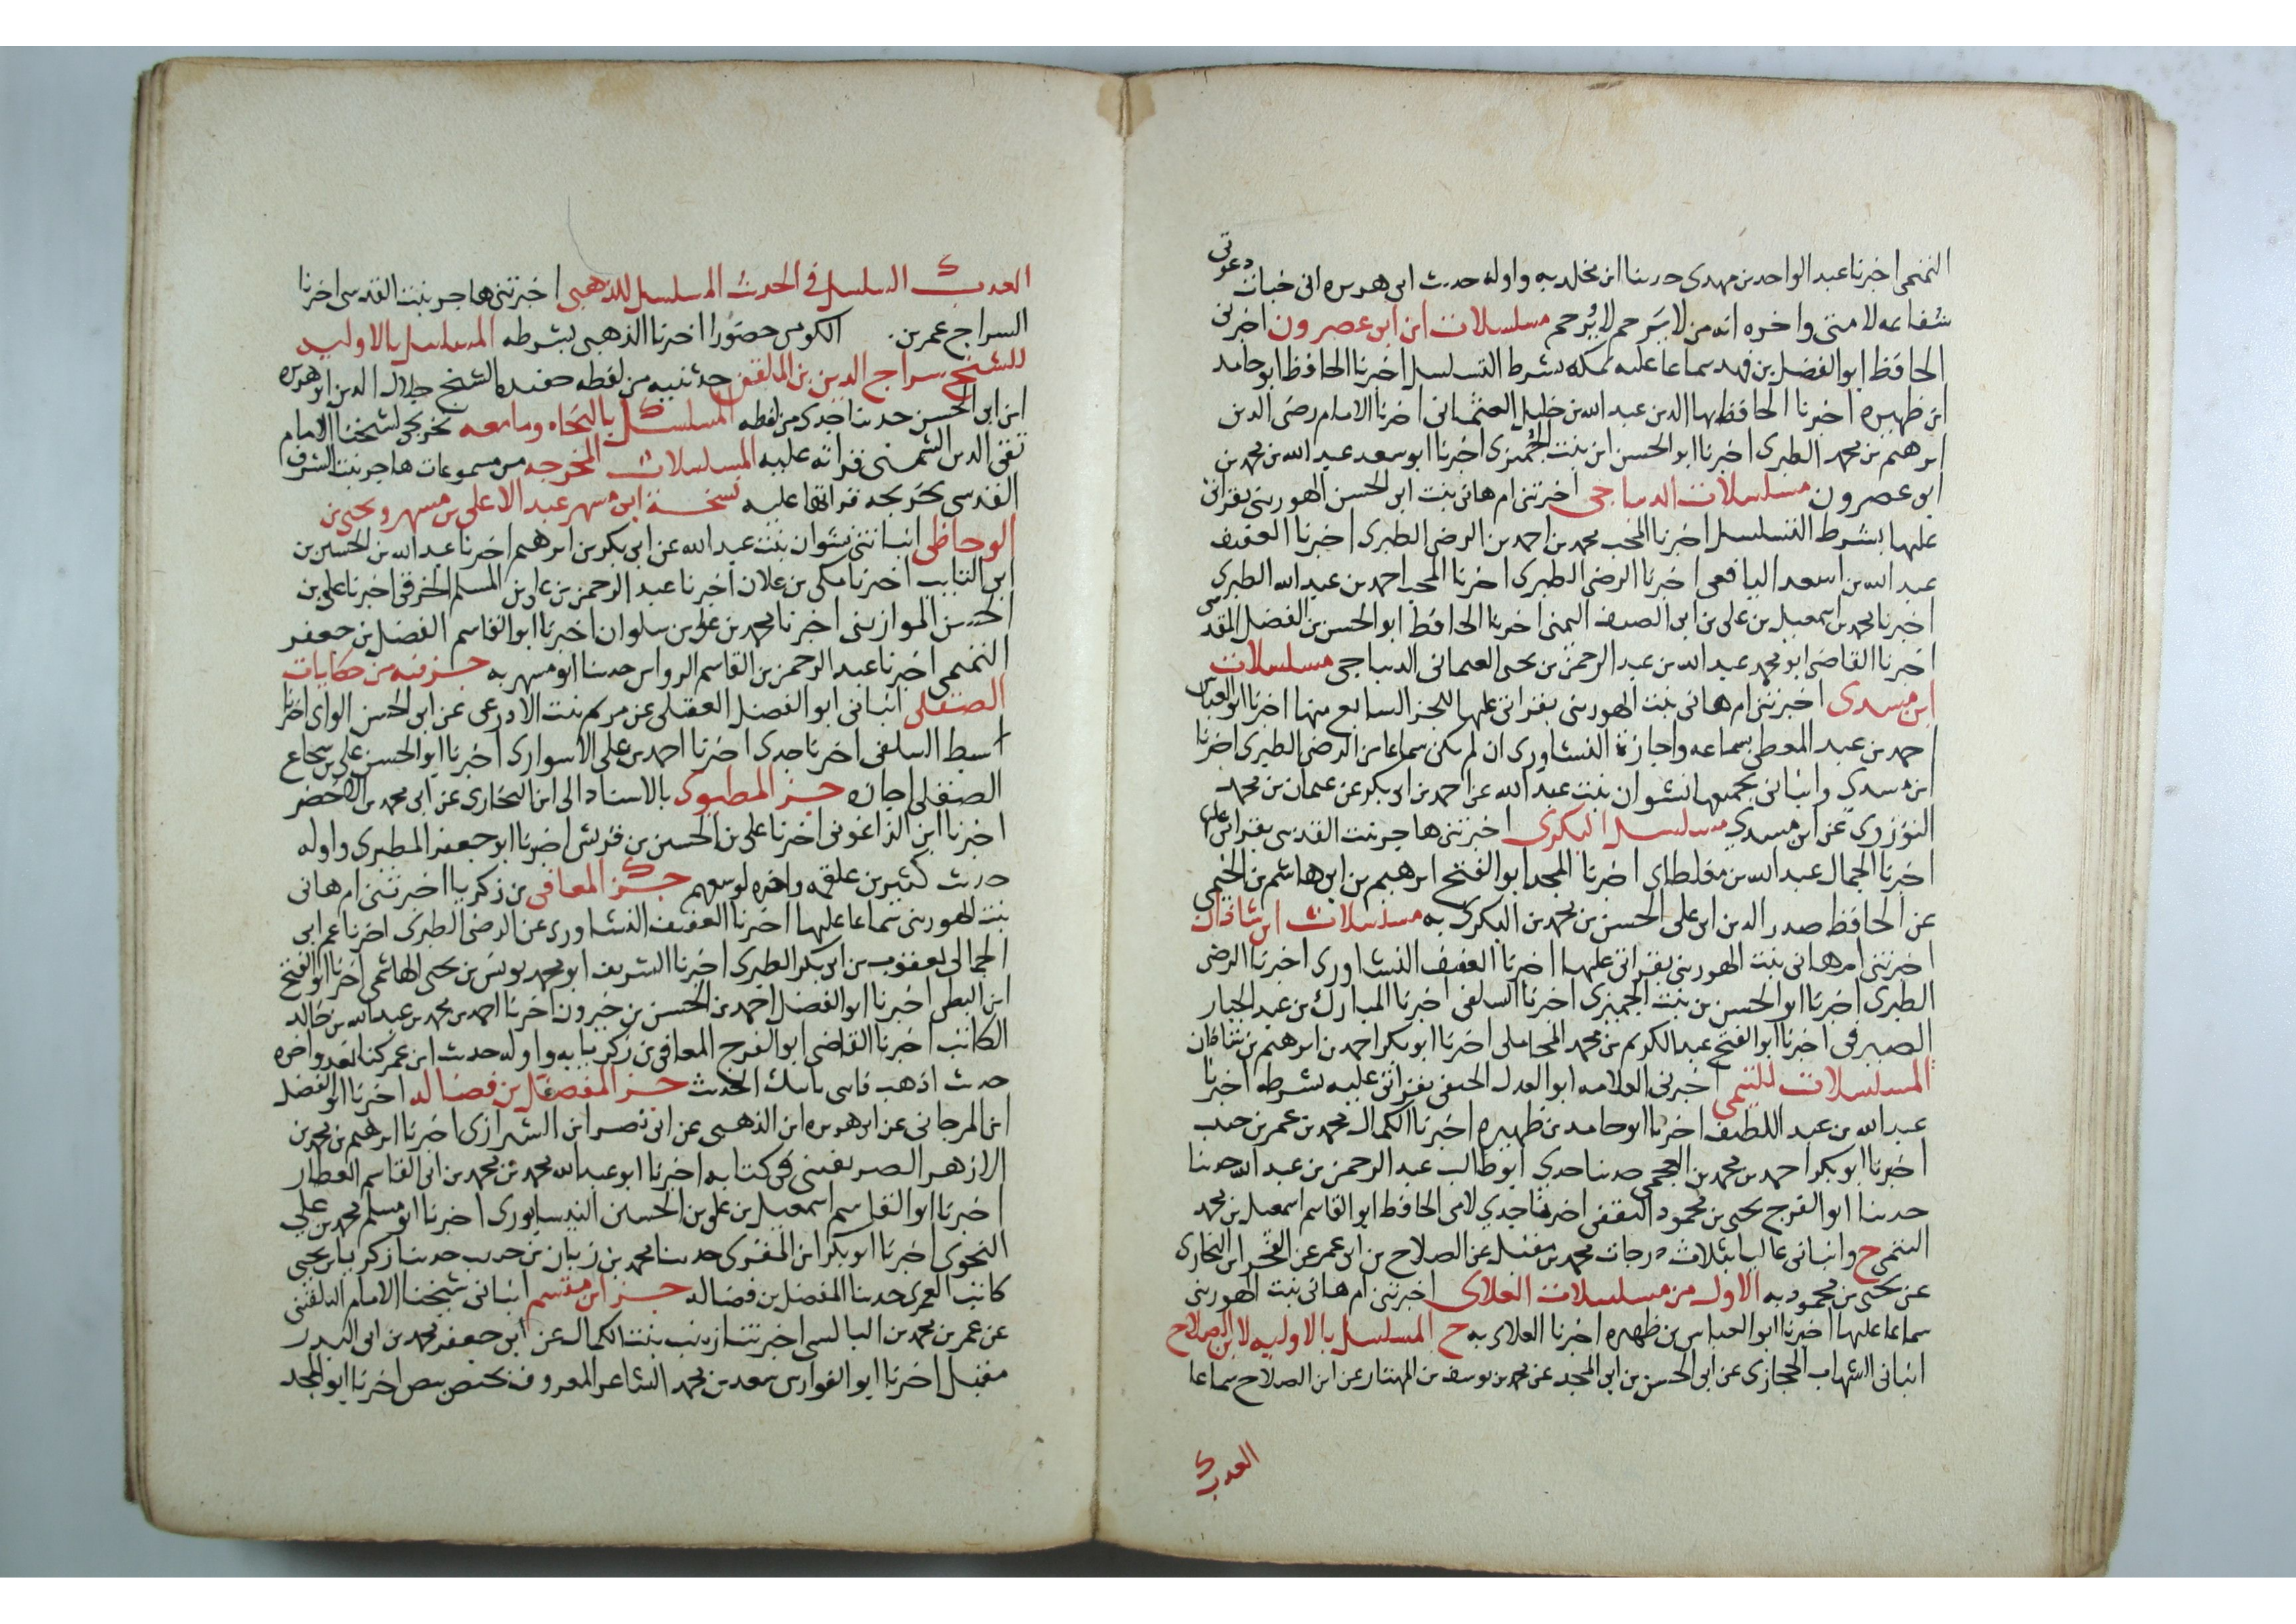 التميمى اخبرنا عبد الواحد بن مهدى حدثنا ابن مخلد به واوله حديث ابى هريره انى خبات دعوتى
شفاعه لامتى واخره انه من لا يَرحم لا يُرحم مسلسلات ابن ابى عصرون اخبرنى
الحافظ ابو الفضل بن فهد سماعا عليه بمكه بشرط التسلسل اخبرنا الحافظ ابو حامد
ابن ظهيره اخبرنا الحافظ بها الدين عبد الله بن خليل العثمانى اخبرنا الامام رضى الدين
ابرهيم بن محمد الطبرى اخبرنا ابو الحسن ابن بنت الجُميزى اخبرنا ابو سعد عبد الله بن محمد بن
ابى عصرون مسلسلات الديباجى اخبرتنى ام هانى بنت ابى الحسن الهورينى بقراتى
عليها بشرط التسلسل اخبرنا المحب محمد بن احمد بن الرضى الطبرى اخبرنا العفيف
عبد الله بن اسعد اليافعى اخبرنا الرضى الطبرى اخبرنا المحب احمد بن عبد الله الطبرى
اخبرنا محمد بن اسمعيل بن على بن ابى الصيف اليمنى اخبرنا الحافظ ابو الحسن بن الفضل المقدسى
اخبرنا القاضى ابو محمد عبد الله بن عبد الرحمن بن يحيى العثمانى الديباجى مسلسلات
ابن مسدى اخبرتنى ام هانى بنت الهورينى بقراتى عليها للجز السابع منها اخبرنا ابو العباس
احمد بن عبد المعطى بسماعه واجازة النشاورى ان لم يكن سماعا من الرضى الطبرى اخبرنا
ابن مسدى وانبانى بجميعها نشوان بنت عبد الله عن احمد بن ابى بكر عن عثمان بن محمد
التوزرى عن ابن مسدى مسلسل البكرى اخبرتنى هاجر بنت القدسى بقراتى عليها
اخبرنا الجمال عبد الله بن مغلطاى اخبرنا المجد ابو الفتح ابرهيم بن ابى هاشم بن الخيمى
عن الحافظ صدر الدين ابى على الحسن بن محمد بن البكرى به مسلسلات ابن شاذان
اخبرتنى ام هانى بنت الهورينى بقراتى عليها اخبرنا العفيف النشاورى اخبرنا الرضى
الطبرى اخبرنا ابو الحسن بن بنت الجميزى اخبرنا السلفى اخبرنا المبارك بن عبد الجبار
الصيرفى اخبرنا ابو الفتح عبد الكريم بن محمد المحاملى اخبرنا ابو بكر احمد بن ابرهيم بن شاذان
المسلسلات للتيمى اخبرنى العلامه ابو العدل الحنفى بقراتى عليه بشرطه اخبرنا
عبد الله بن عبد اللطيف اخبرنا ابو حامد بن ظهيره اخبرنا الكمال محمد بن عمر بن حبيب
اخبرنا ابو بكر احمد بن محمد بن العجمى حدثنا جدى ابو طالب عبد الرحمن بن عبد الله حدثنا
حدثنا ابو الفرج يحيى بن محمود الثقفى اخبرنا جدي لامى الحافظ ابو القاسم اسمعيل بن محمد
التيمى ح وانبانى عاليا بثلاث درجات محمد بن مقبل عن الصلاح بن ابى عمر عن الفخر ابن البخارى
عن يحيى بن محمود به الاول من مسلسلات العلاى اخبرتنى ام هانى بنت الهورينى
سماعا عليها اخبرنا ابو العباس بن ظهيره اخبرنا العلاى به ح المسلسل بالاوليه لابن الصلاح
انبانى الشهاب الحجازى عن ابى الحسن بن ابى المجد عن محمد بن يوسف بن المهتار عن ابن الصلاح سماعا
العدب
العدب السلسل فى الحديث المسلسل للذهبى اخبرتنى هاجر بنت القدسى اخبرنا
السراج عمر بن الكومى حضورا اخبرنا الذهبى بشرطه المسلسل بالاوليه
للشيخ سراج الدين بن الملقن حدثنيه من لفظه حفيده الشيخ جلال الدين ابو هريره
ابن ابى الحسن حدثنا جدى من لفظه المسلسل بالنحاه وما معه تخريجى لشيخنا الامام
تقى الدين الشمنى قراته عليه المسلسلات المخرجه من مسموعات هاجر بنت الشرف
القدسى تخريجه قراتها عليه نسخة ابى مسهر عبد الاعلى بن مسهر ويحيى بن
الوحاظى انباتنى نشوان بنت عبد الله عن ابى بكر بن ابرهيم اخبرنا عبد الله بن الحسين بن
ابى التايب اخبرنا مكى بن علان اخبرنا عبد الرحمن بن على بن المسلم الخرقى اخبرنا على بن
الحسن الموازينى اخبرنا محمد بن على بن سلوان اخبرنا ابو القاسم الفضل بن جعفر
التميمى اخبرنا عبد الرحمن بن القاسم الرواس حدثنا ابو مسهر به جز فيه من حكايات
الصقلى انبانى ابو الفضل العقيلى عن مريم بنت الاذرعى عن ابى الحسن الوانى اخبرنا
سبط السلفى اخبرنا جدى اخبرنا احمد بن على الاسوارى اخبرنا ابو الحسن على بن شجاع
الصقلى اجازه جز المطيرى بالاسناد الى ابن البخارى عن ابى محمد بن الاخضر
اخبرنا ابن الزاغونى اخبرنا على بن الحسين بن قريش اخبرنا ابو جعفر المطيرى واوله
حديث كثير بن علقمه واخره لوسعهم جز المعافى بن زكريا اخبرتنى ام هانى
بنت الهورينى سماعا عليها اخبرنا العفيف النشاورى عن الرضى الطبرى اخبرنا عم ابى
الجمالى يعقوب بن ابى بكر الطبرى اخبرنا الشريف ابو محمد يونس بن يحيى الهاشمى اخبرنا ابو الفتح
ابن البطى اخبرنا ابو الفضل احمد بن الحسن بن خيرون اخبرنا احمد بن محمد بن عبد الله بن خالد
الكاتب اخبرنا القاضى ابو الفرج المعافى بن زكريا به واوله حديث ابن عمر كنا نعد واخره
حديث اذهب فاسى باسك الحديث جز المفضل بن فضاله اخبرنا ابو الفضل
ابن المرجانى عن ابى هريره ابن الذهبى عن ابى نصر ابن الشيرازى اخبرنا ابرهيم بن محمد بن
الازهر الصريفينى فى كتابه اخبرنا ابو عبد الله محمد بن محمد بن ابى القاسم العطار
اخبرنا ابو القاسم اسمعيل بن على بن الحسين النيسابورى اخبرنا ابو مسلم محمد بن على
النحوى اخبرنا ابو بكر ابن المقرى حدثنا محمد بن زبان بن حبيب حدثنا زكريا بن يحيى
كاتب العمرى حدثنا المفضل بن فضاله جز ابن مقسم انبانى شيخنا الامام البلقينى
عن عمر بن محمد بن البالسى اخبرتنا زينب بنت الكمال عن ابى جعفر محمد بن ابى البدر
مقبل اخبرنا ابو الفوارس سعد بن محمد الشاعر المعروف بحيص بيص اخبرنا ابو المجد